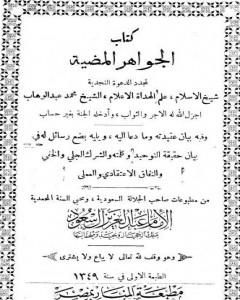 كتاب
الجواهر المضية
لمجدد الدعوة النجدية
شيخ الاسلام، علم الهداة الاعلام، الشيخ محمد عبد الوهاب
اجزل الله له الاجر والثواب، وأدخله الجنة بغير حساب
وفيه بيان عقيدته وما دعا اليه، ويليه بضع رسائل له في
بيان حقيقة التوحيد وكلمته والشرك الجلي والخفي
والنفاق الاعتقادي والعملي
من مطبوعات صاحب الجلالة السعودية، ومحيي السنة المحمدية
الإمام عبد العزيز آل سعود
ملك الحجاز ونجد وملحقاتها
وهو وقف لله تعالى لا يباع ولا يشترى
الطبعة الاولى في سنة ١٣٤٩
مطبعة المنار بمصر